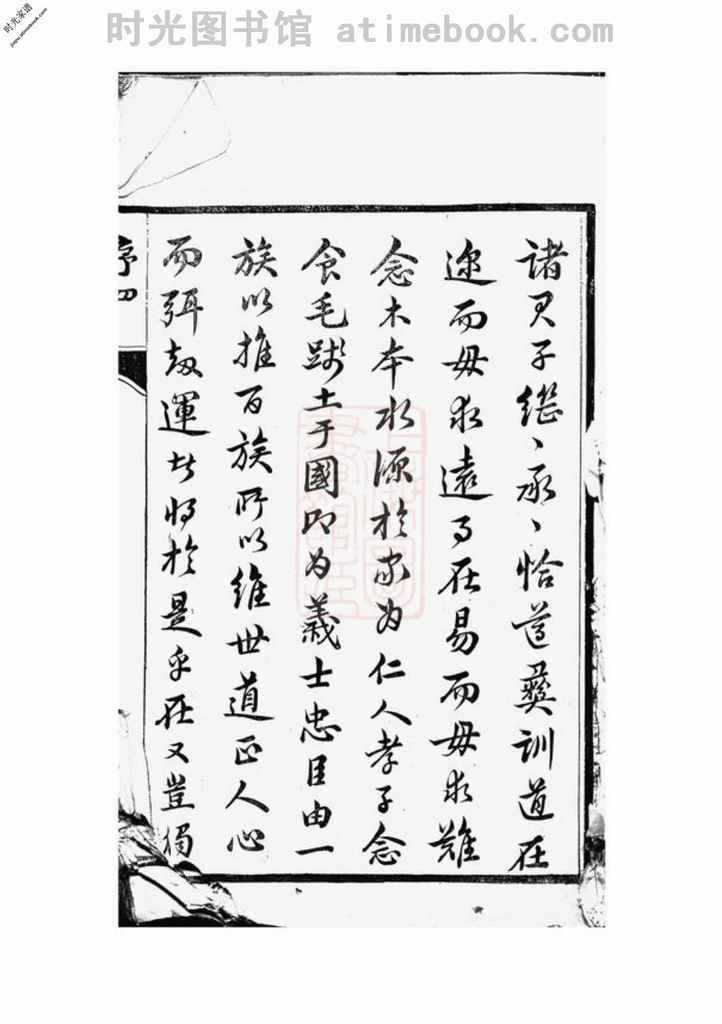 时光图书馆 atimebook.com
时光家谱
jiapu.atimebook.com
諸君子繼丶承丶恪遵彝訓道在
迩而毋求遠事在易而毋求難
念木本水源於家为仁人孝子念
食毛踐土于國即为義士忠臣由一
族以推百族所以維世道正人心
而弭劫運者将於是乎在又豈獨
序四